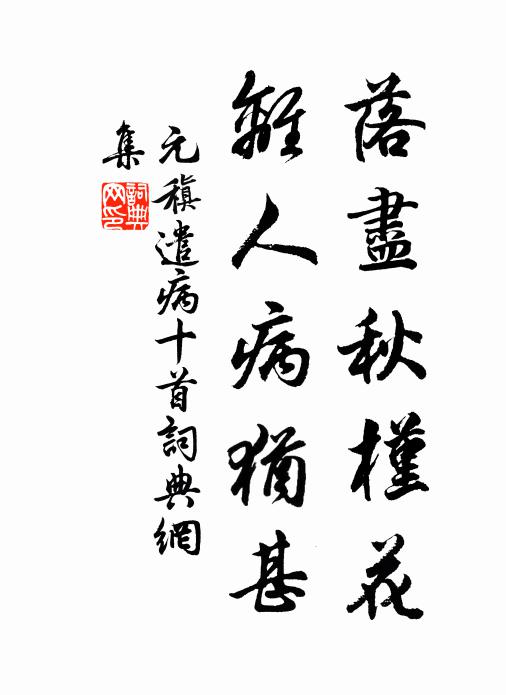 落盡秋槿花
離人病猶甚
元稹遣病十首詞典網
集
詞典
网印